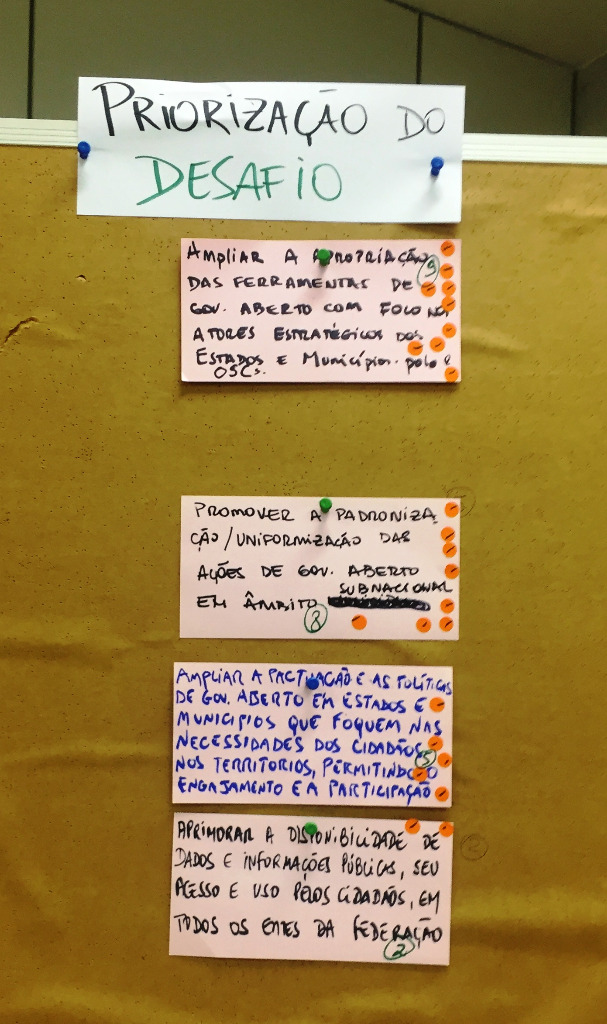 PRIORIZAÇÃO DO
DESAFIO
AMPLIAR A APROPRIAÇÃO
DAS FERRAMENTAS DE
GOV. ABERTO COM FOCO NOS
ATORES ESTRATÉGICOS DOS
ESTADOS E MUNICÍPIOS. pelo
OSCs.
9
PROMOVER A PADRONIZA
ÇÃO/UNIFORMIZAÇÃO DAS
AÇÕES DE GOV. ABERTO
SUBNACIONAL
EM ÂMBITO
8
AMPLIAR A PACTUAÇÃO E AS POLÍTICAS
DE GOV. ABERTO EM ESTADOS E
MUNICIPIOS QUE FOQUEM NAS
NECESSIDADES DOS CIDADÃOS
NOS TERRITORIOS, PERMITINDO O
ENGAJAMENTO E A PARTICIPAÇÃO
5
APRIMORAR A DISPONIBILIDADE DE
DADOS E INFORMAÇÕES PÚBLICAS, SEU
ACESSO E USO PELOS CIDADÃOS, EM
TODOS OS ENTES DA FEDERAÇÃO
2
2